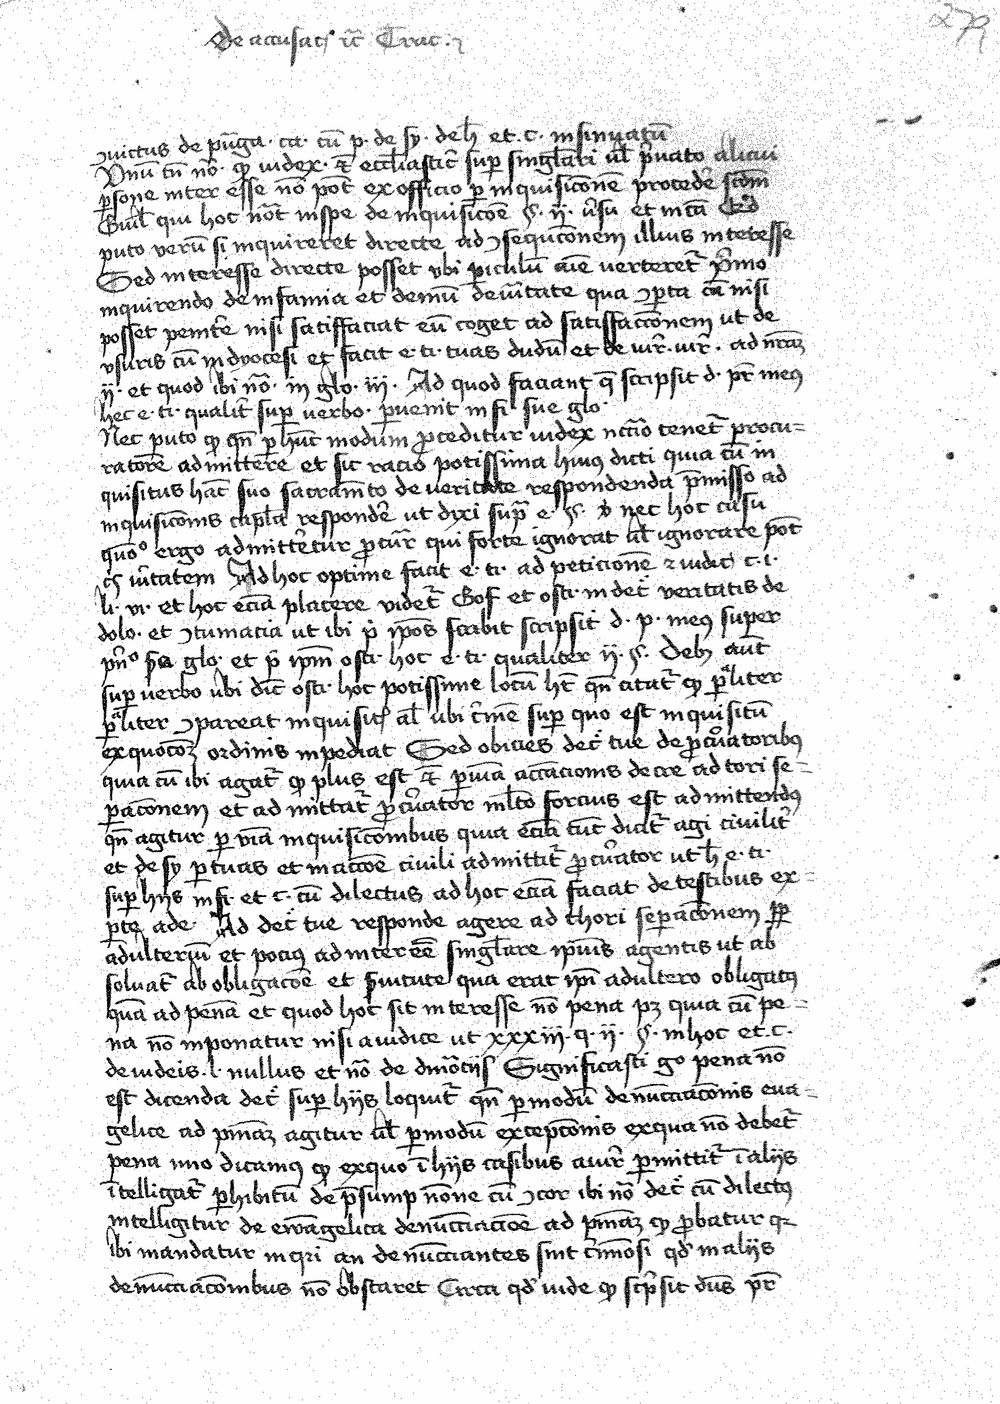 De accusac͛ ic̄ Trac.
279
ↄuictus de pur̄ga. ca. cū p. de sy. de h̄ et. c. insinuatū
Vnū tn̄ nō. qͥ iudex. ecclīastic͛ suꝑ singl̄ari ul̄ p̄uato alicui
ꝑsone inter esse nō pōt ex officio ꝑ inquisicōem procede͛ scd̄m
Guil̄ qui hoc nōt in spe de inquisicōe §. ij. v̄su et in cā
puto verū si inquireret directe ad ↄsequcōnem illius interesse
Sed interesse directe posset vbi ꝑiculū aīe verteret͛ p͛mo
inquirendo de infamia et demū de ūitate qua ↄꝑta nisi
posset penit͛e nisi satisfaciat eū coget ad satisfaccōnem ut de
vsuris cū in dyocesi et facit e. ti. tuas dudū et de iur͛. iur͛. ad nr̄az
ij. et quod ibi nō. in glo. iij. Ad quod faciant q̄ scripsit d. pr̄ meꝰ
hec e. ti. qualit͛ suꝑ verbo. ꝑuenit in fi. sue glo.
Nec puto qͥ qn̄ ꝑ hūc modum ꝓceditur iudex nccīo tenet͛ procu=
ratorē admittere et sic racio potissima huiꝰ dicti quia cū in
quisitus hāc suo sacram̄to de veritate respondenda p̄misso ad
inquisicōnis capl̄a responde͛ ut dixi sup̄ e. §. nec hoc casu
quōº ergo admitteretur ꝓcur͛ qui forte ignorat ul̄ ignorare pōt
ūitatem Ad hoc optime facit e. ti. ad peticionē et iudic͛ c. i.
li. vi. et hoc ecīa placere videt͛ Gof et osti. in dec͛ veritatis de
dolo. et ↄtumacia ut ibi p̄ ip̄os scribit scripsit d. p. meꝰ super
pn̄º glo. et p̄ ip̄m osti. hoc e. ti. qualiter ij. §. Debꝫ aut̄
suꝑ verbo ubi dic̄ osti. hoc potissime locū ht̄ qn̄ citat͛ qͥ ꝑᵃliter
ꝑᵃliter ↄpareat inquisit͛ al̄ ubi c͛mē suꝑ quo est inquisitū
exquocōꝫ ordinis inpediat Sed obicies dec͛ tue de ꝓcuratoribꝰ
quia cū ibi agat͛ qͥ plus est ꝑ viā accūacionis de cre ad tori se=
paconem et admittat͛ ꝓcurator ml̄to forcius est admittendꝰ
qn̄ agitur ꝑ viā inquisicōnibus quia ecīa tūc dicit͛ agi civilit͛
et de sy ꝑ tuas et in accōe civili admittit͛ ꝓcurator ut h̄ e. ti.
suꝑ hijs in fi. et c. cū dilectus ad hoc ecīa faciat de testibus ex=
ꝑte ade. Ad dec͛ tue responde agere ad thori seꝑacōnem ꝓꝑ
adulteriū et pociꝰ ad interēē singl̄are ip̄ius agentis ut ab
soluat͛ ab obligacōe et p̄uitute qua erat ip̄i adultero obligatꝰ
quā ad penā et quod hoc sit interesse nō pena pꝫ quia cū pe=
na nō inponatur nisi a iudice ut xxxiij. q. ij. §. in hoc et. c.
de iudeis. l. nullus et nō de diuōcijs Significasti go pena nō
est dicenda dec͛ suꝑ hijs loquit͛ qn̄ ꝑ modū denūcciacōnis eua=
gelice ad pm̄aꝫ agitur ul̄ ꝑ modū excepcōnis ex qua nō debet͛
pena imo dicamꝰ qͥ exquo ī hijs casibus a iur͛ ꝑmittit͛ ī alijs
ītelligat͛ ꝓhibitū de p̄sump nōne cū ↄcor ibi nō dec͛ cū dilectꝰ
intelligitur de ewāgelica denūcciacōe ad pm̄aꝫ qͥ ꝓbatur qꝛ
ibi mandatur inq̄ri an denūcciantes sint c͛mōsi qd͛ in alijs
denūcciacōnibus nō obstaret Circa qd͛ vide qͥ scp̄sit dn̄s pr̄